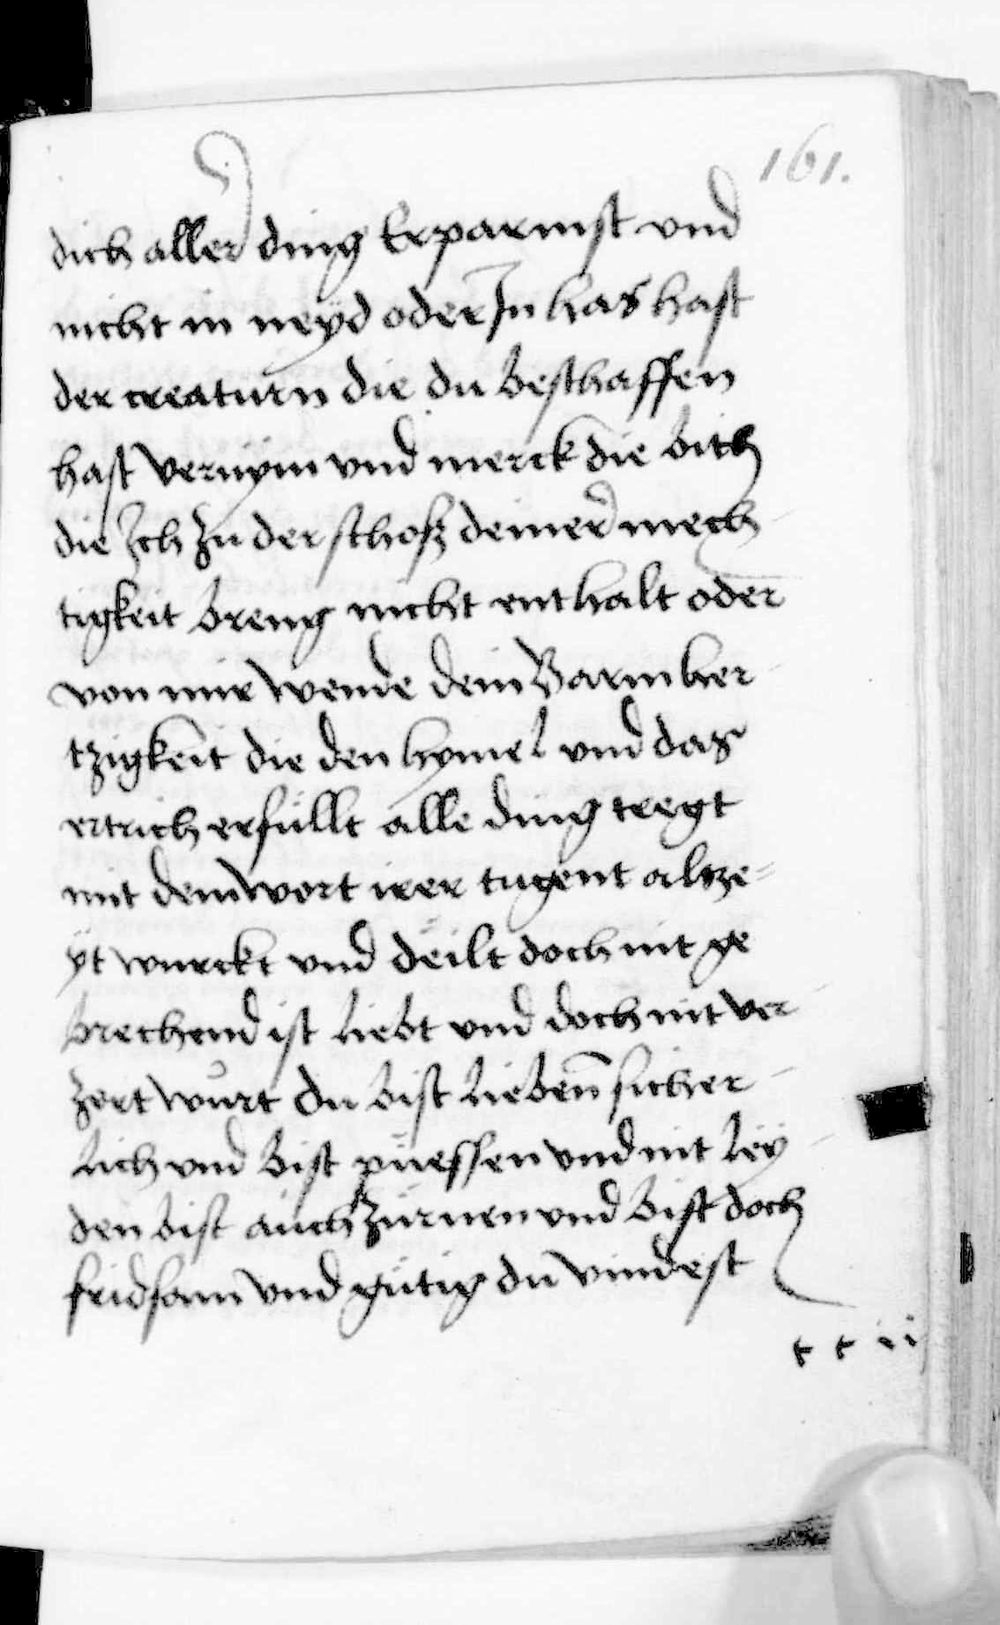 161.
dich aller ding Erparmst vnd
nicht in neyd oder In has hast
der creaturn die du beschaffen
hast vernym vnd merck die bith
die Ich zu der schosz deiner mech
tigkeit breng nicht enthalt oder
von mir wende dein Barmher
tzigkeit die den hymel vnd das
ertrich erfullt alle ding tregt
mit dem wort irer tugent altze-
yt wurckt vnd deilt doch nit ge
brechend ist liebt vnd doch nit ver
zert wurt du bist lieben sicher
lich vnd bist puessen vnd nit ley
den bist auch zurnen vnd bist doch
fridsam vnd gutig du vindest
t t ii